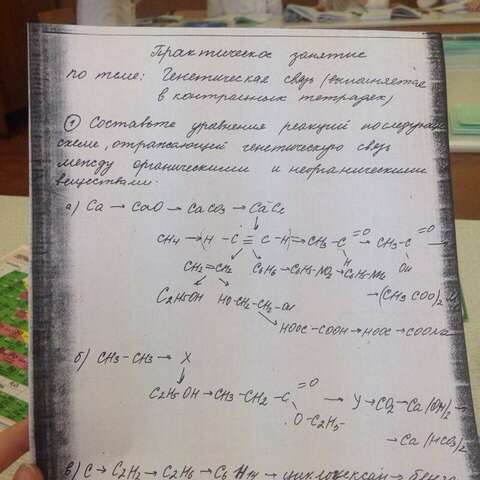 Практическое занятие
по теме: Генетическая связь (выполняется
в контрольных тетрадях)
① Составьте уравнения реакций
схеме, отражающей генетическую связь
между органическими и неорганическими
веществами:
а) Ca → CaO → CaCO3 → CaC2
CH4 → H-C≡C-H → CH3-C=O H → CH3-C=O OH →
CH2=CH2 C6H6 → C6H5-NO2 → C6H5-NH2
→ (CH3COO)2
C2H5OH HO-CH2-CH2-OH
HOOC-COOH → HOOC → COONa
б) CH3-CH3 → X
C2H5OH → CH3-CH2-C=O O-C2H5 → У → CO2 → Ca(OH)2 →
→ Ca(HCO3)2
в) C → C2H2 → C2H6 → C6H14 → циклогексан →